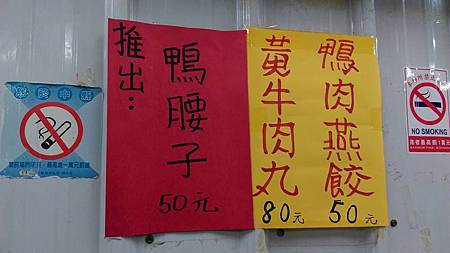 推出：
鴨腰子
50元
鴨肉燕餃
50元
黃牛肉丸
80元
NO SMOKING